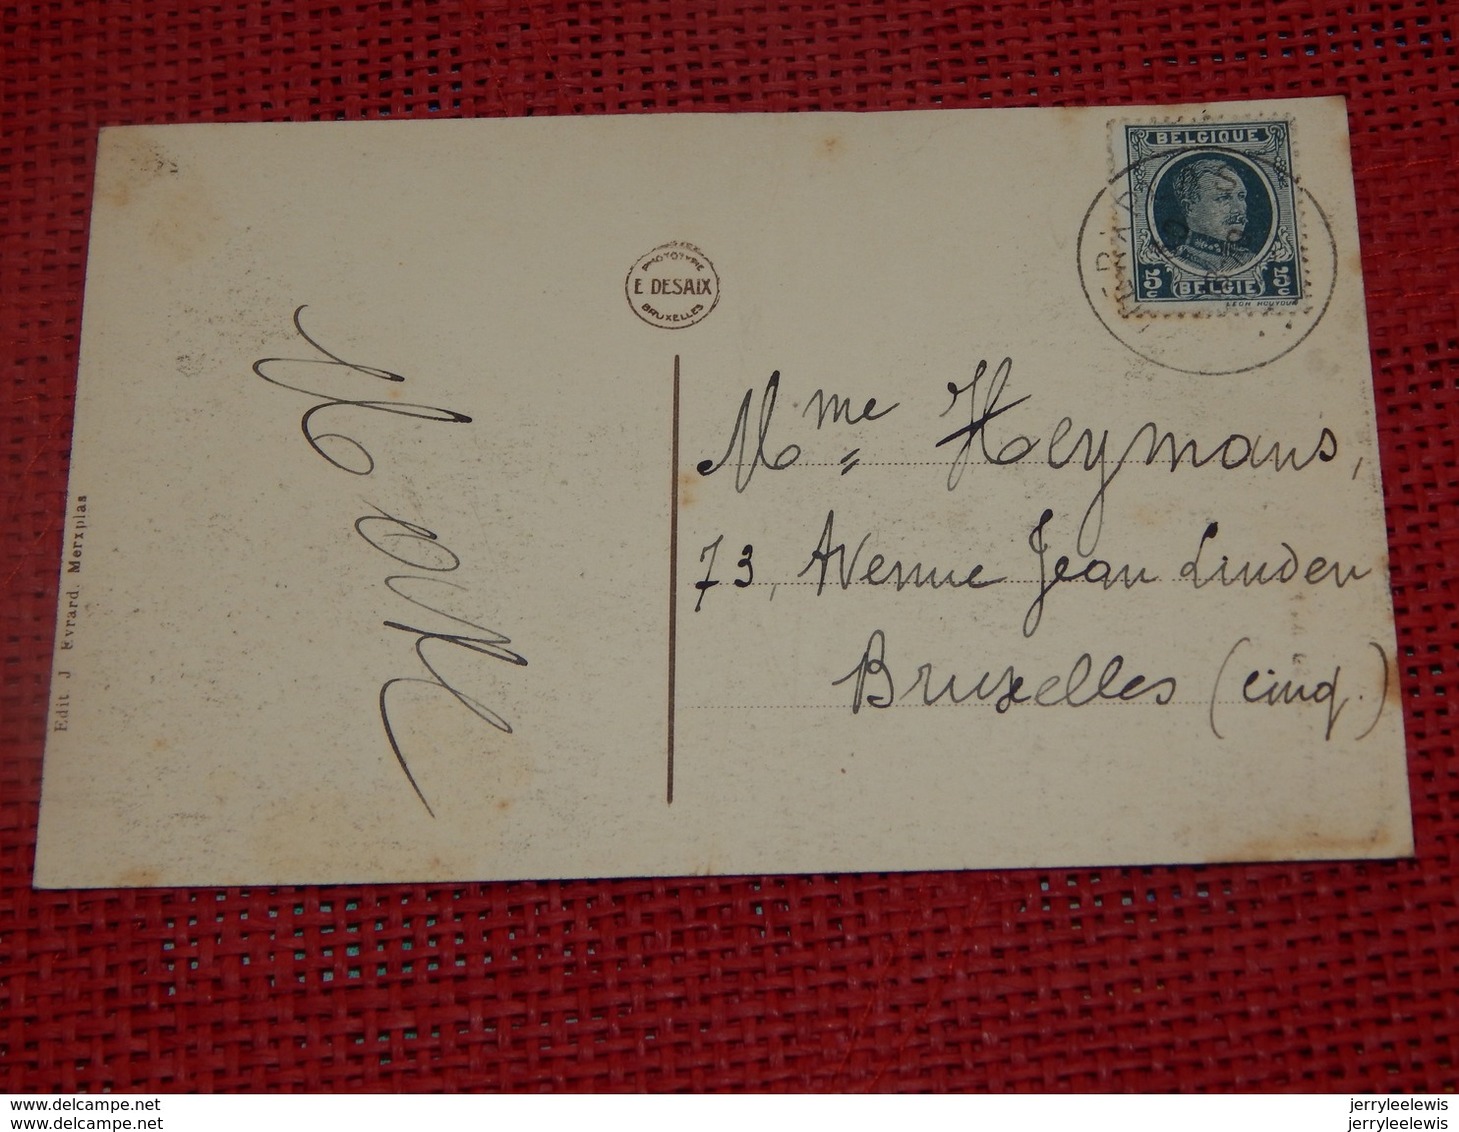 BELGIQUE
5c 5c
BELGIE
PHOTOTYPIE
E DESAIX
BRUXELLES
Mme Heymans,
73, Avenue Jean Linden
Bruxelles (cinq.)
Edit J Evrard. Merxplas
www.delcampe.net
www.delcampe.net
jerryleelewis
jerryleelewis